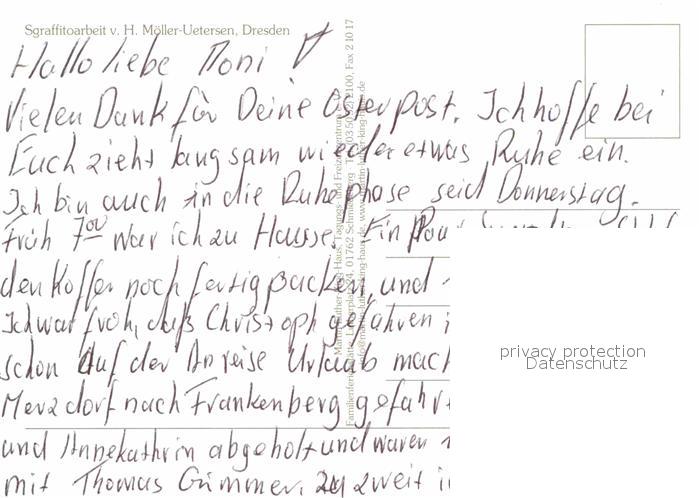 Sgraffitoarbeit v. H. Möller-Uetersen, Dresden
Hallo liebe Moni
Vielen Dank für Deine Osterpost. Ich hoffe bei
Euch zieht langsam wieder etwas Ruhe ein.
Ich bin auch in die Ruhephase seid Donnerstag.
Früh 7⁰⁰ war ich zu Hausse. Ein
den Koffer noch fertig packen, und
Ich war froh, daß Christoph gefahren
schon auf der Anreise Urlaub mach
Merzdorf nach Frankenberg gefahr
und Annekathrin abgeholt und waren
mit Thomas Grimmer. zu zweit
privacy protection
Datenschutz